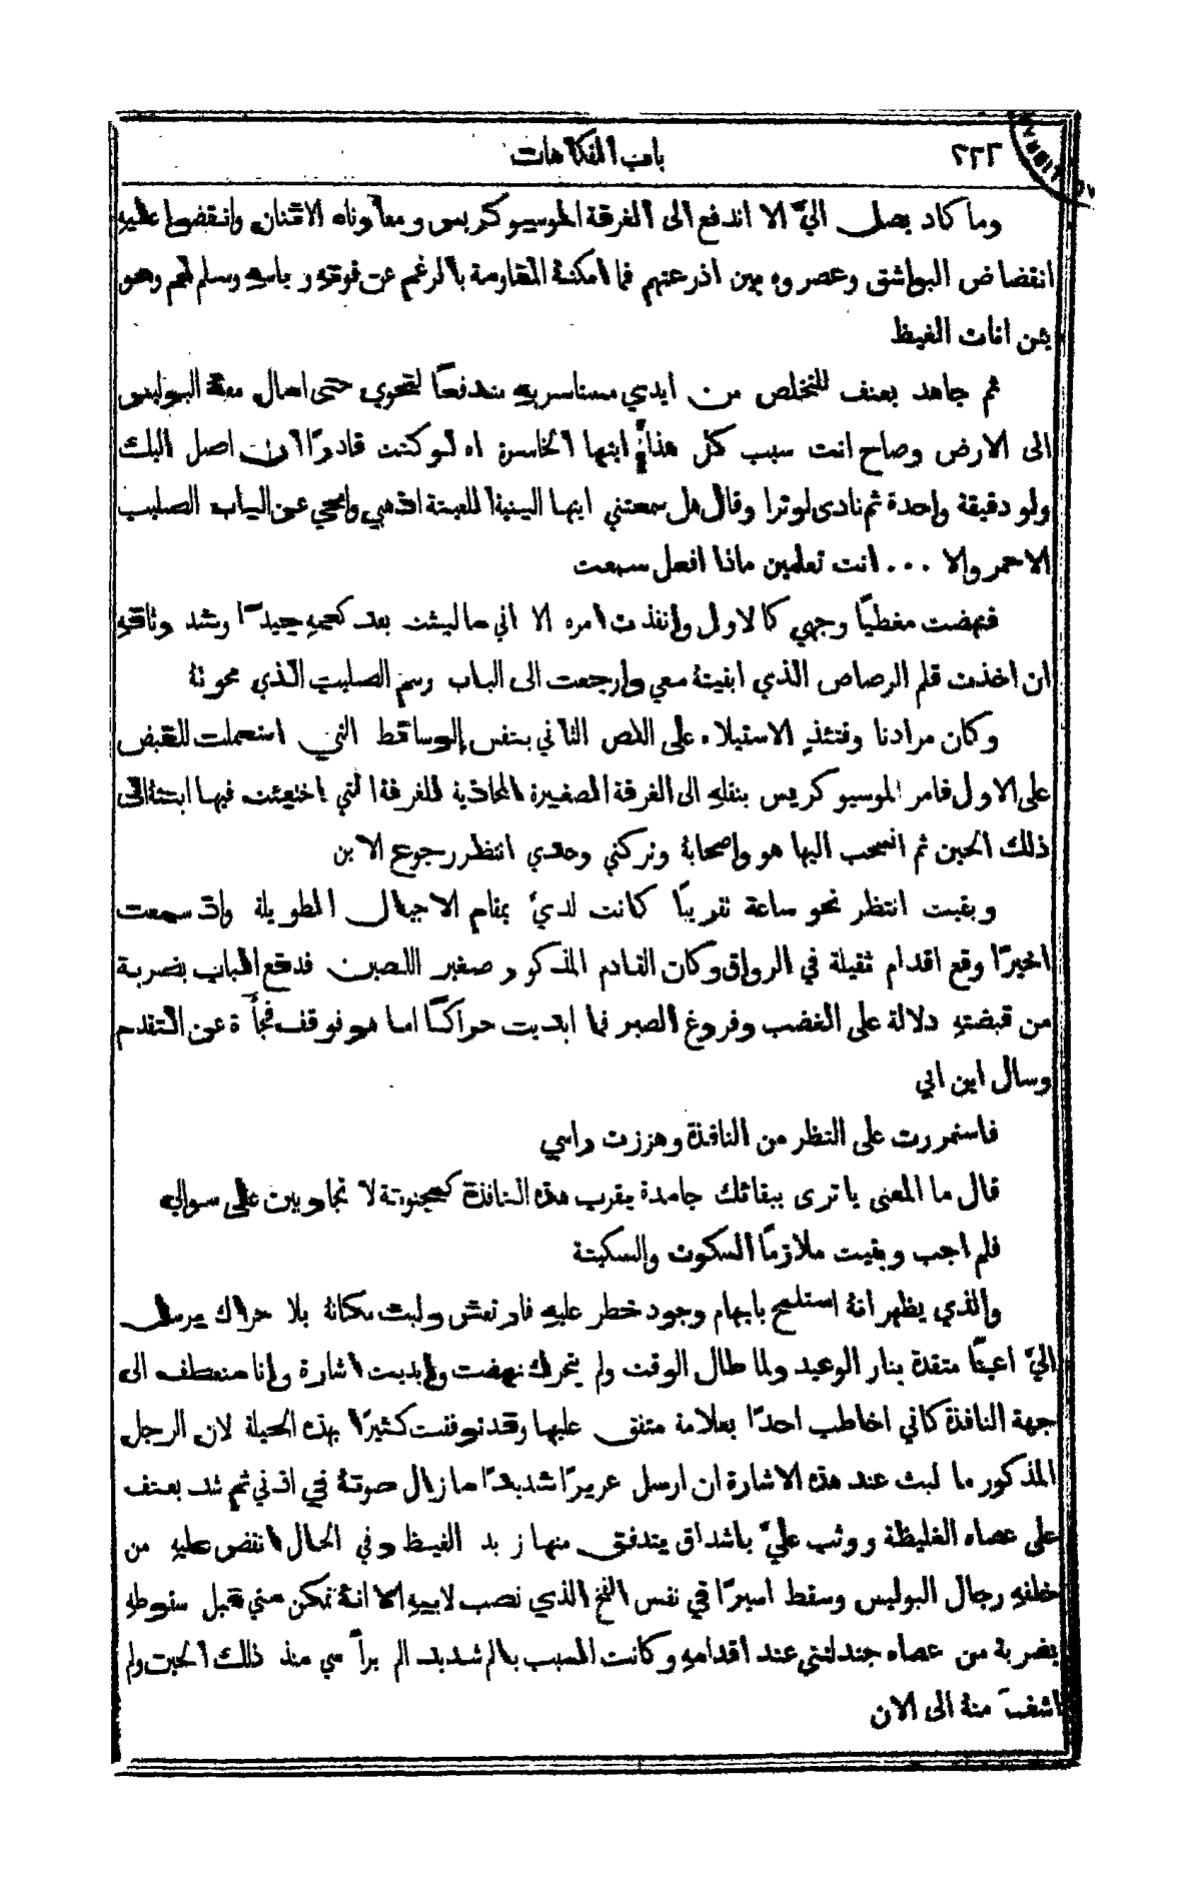 ٢٢٢
باب الفكاهات
وما كاد يصل اليّ الا اندفع الى الغرفة الموسيو كريس ومعاوناه الاثنان وانقضوا عليهِ
انقضاض البواشق وعصروه بين اذرعتهم فما امكنهُ المقاومة بالرغم عن قوتهِ وباسهِ وسلم لهم وهو
يئن انات الغيظ
ثم جاهد بعنف للتخلص من ايدي مستاسريهِ مندفعاً لنحوي حتى امال معهُ البوليس
الى الارض وصاح انت سبب كل هذا ايتها الخاسرة اه لو كنت قادراً ان اصل اليك
ولو دقيقة واحدة ثم نادى لوترا وقال هل سمعتني ايتها البنية اللعينة اذهبي وامحي عن الباب الصليب
الاحمر والا ... انت تعلمين ماذا افعل سمعت
فنهضت مغطياً وجهي كالاول وانفذت امره الا اني ما لبثت بعد كعمهِ جيداً وشد وثاقهِ
ان اخذت قلم الرصاص الذي ابقيتهُ معي وارجعت الى الباب رسم الصليب الذي محوتهُ
وكان مرادنا وقتئذٍ الاستيلاء على اللص الثاني بنفس الوسائط التي استعملت للقبض
على الاول فامر الموسيو كريس بنقلهِ الى الغرفة الصغيرة المحاذية للغرفة التي اختبئت فيها ابنتهُ الى
ذلك الحين ثم انسحب اليها هو واصحابهُ وتركني وحدي انتظر رجوع الابن
وبقيت انتظر نحو ساعة تقريباً كانت لديّ بمقام الاجيال الطويلة واذ سمعت
اخيراً وقع اقدام ثقيلة في الرواق وكان القادم المذكور صغير اللصين فدفع الباب بضربة
من قبضتهِ دلالة على الغضب وفروغ الصبر فما ابديت حراكاً اما هو فوقف فجأة عن التقدم
وسال اين ابي
فاستمررت على النظر من النافذة وهززت راسي
قال ما المعنى يا ترى ببقائك جامدة بقرب هذه النافذة كمجنونة لا تجاوبين على سوالي
فلم اجب وبقيت ملازماً السكون والسكينة
والذي يظهر انهُ استلمح بابهام وجود خطر عليهِ فارتعش ولبث مكانهُ بلا حراك يرسل
اليّ اعيناً متقدة بنار الوعيد ولما طال الوقت ولم يتحرك نهضت وابديت اشارة وانا منعطف الى
جهة النافذة كاني اخاطب احداً بعلامة متفق عليها وقد توفقت كثيراً بهذه الحيلة لان الرجل
المذكور ما لبث عند هذه الاشارة ان ارسل عريراً شديداً ما زال صوتهُ في اذني ثم شد بعنف
على عصاه الغليظة ووثب عليّ باشداق يتدفق منها زبد الغيظ وفي الحال انقض عليهِ من
خلفهِ رجال البوليس وسقط اسيراً في نفس الفخ الذي نصب لابيهِ الا انهُ تمكن مني قبل سقوطهِ
بضربة من عصاه جندلتني عند اقدامهِ وكانت المسبب بالم شديد الم برأسي منذ ذلك الحين ولم
اشفَ منهُ الى الان